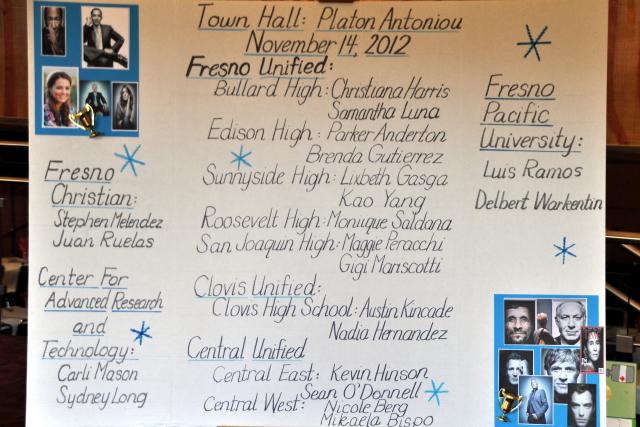 Town Hall: Platon Antoniou
November 14, 2012
Fresno Unified:
Bullard High: Christiana Harris
Samantha Luna
Edison High: Parker Anderton
Brenda Gutierrez
Sunnyside High: Lixbeth Gasga
Kao Yang
Roosevelt High: Moniique Saldana
San Joaquin High: Maggie Peracchi
Gigi Mariscotti
Clovis Unified:
Clovis High School: Austin Kincade
Nadia Hernandez
Central Unified
Central East: Kevin Hinson
Sean O'Donnell
Central West: Nicole Berg
Mikaela Bispo
Fresno
Christian:
Stephen Melendez
Juan Ruelas
Center For
Advanced Research
and
Technology:
Carli Mason
Sydney Long
Fresno
Pacific
University:
Luis Ramos
Delbert Warkentin